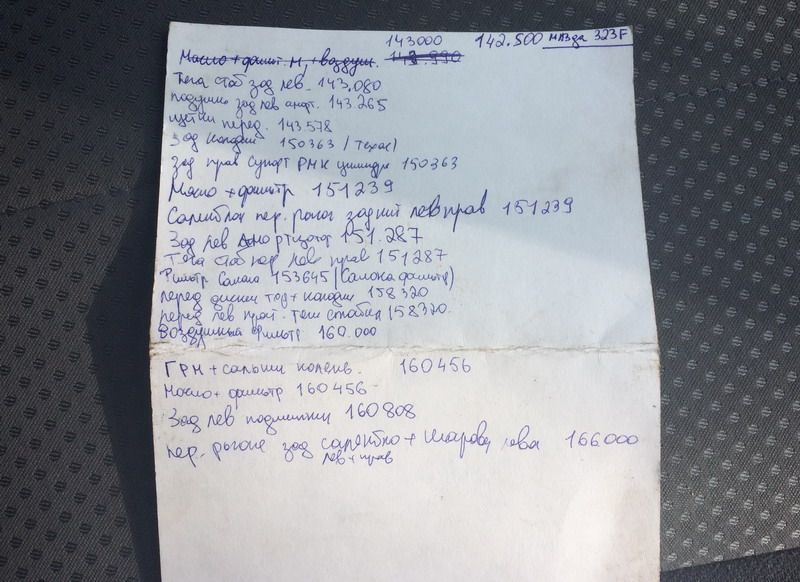 143000 142.500 МАЗда 323F
Масло + фильт. М, + воздуш.
Тяга стаб зад лев. 143,080
подушка зад лев аморт. 143.265
щетки перед. 143.578
Зад колодки 150363 / Texar)
Зад прав Супорт РМК цилиндр 150363
Масло + фильтр 151239
Сайлнблок пер. рычаг задний лев прав 151239
Зад лев Амортизатор 151.287
Тяга стаб пер лев прав 151287
Фильтр Салона 153645 (Салона фильтр)
перед диски тор + колодки 158320
перед лев прав. тяги стабил 158320.
Воздушный Фильтр 160.000
ГРМ + сальники коленв. 160456
Масло + фильтр 160456
Зад лев подшипник 160808
пер. рычаг зад сайлентбло + Шаровая левая 166000
лев + прав